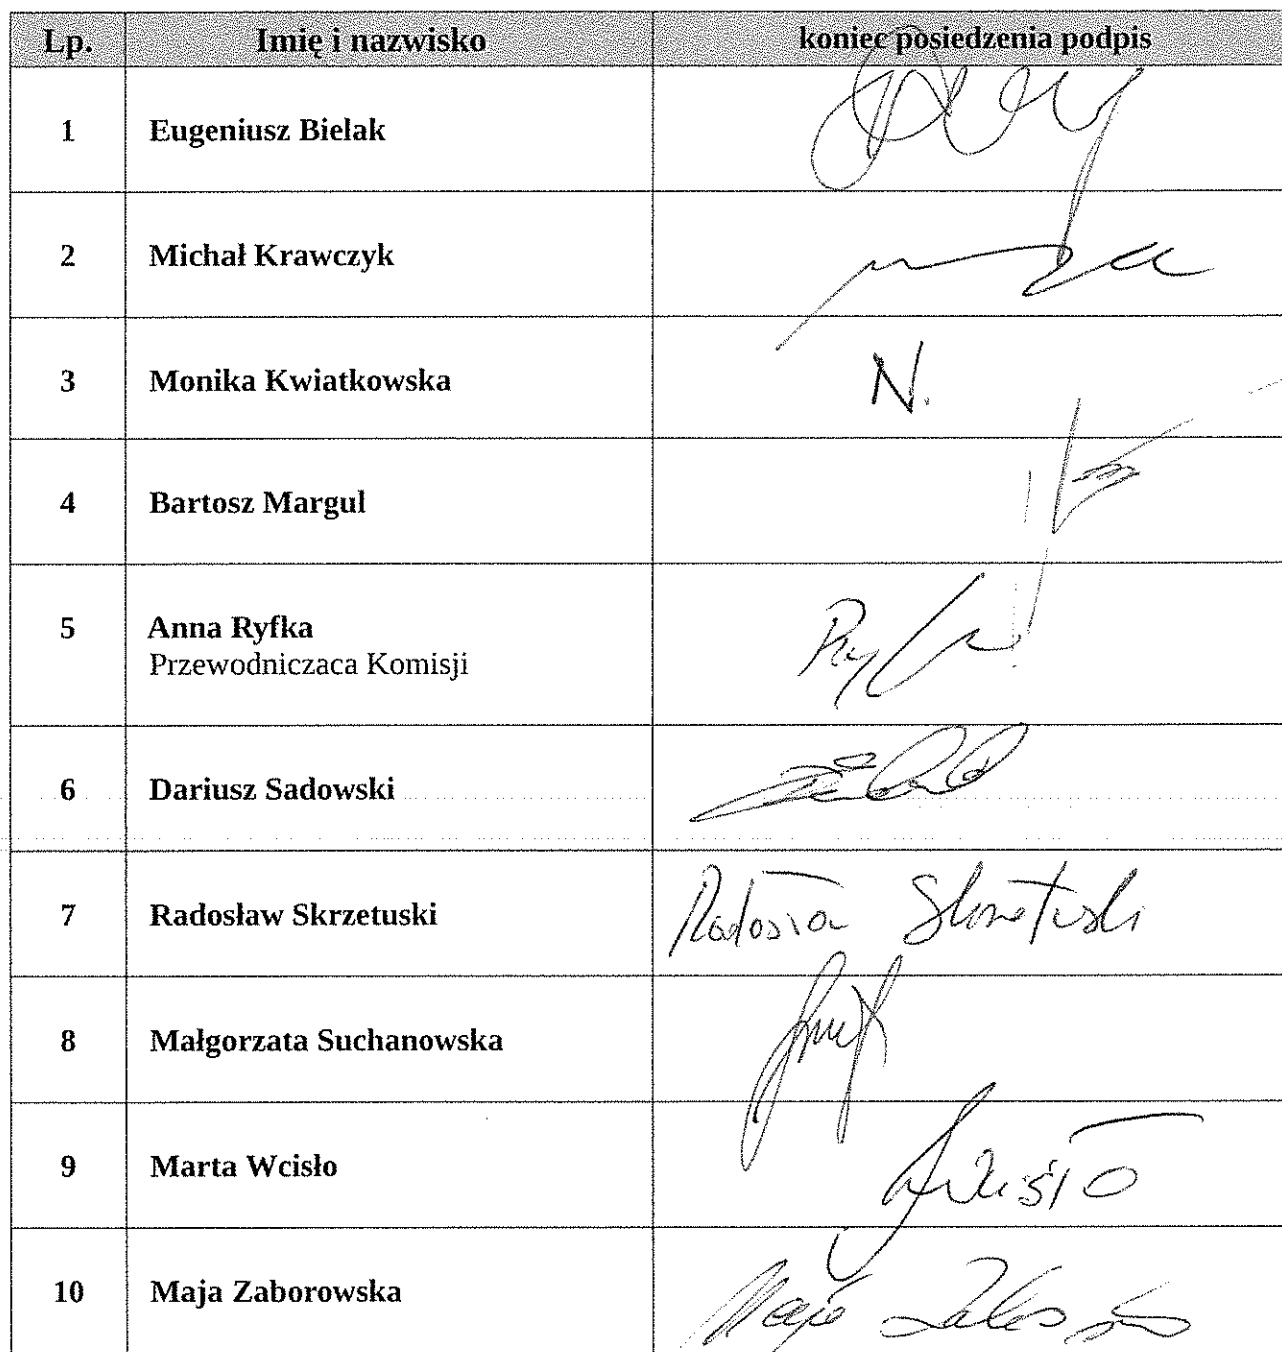 Lp. Imię i nazwisko koniec posiedzenia podpis
1 Eugeniusz Bielak
2 Michał Krawczyk
3 Monika Kwiatkowska N.
4 Bartosz Margul
5 Anna Ryfka
Przewodniczaca Komisji
6 Dariusz Sadowski
7 Radosław Skrzetuski
8 Małgorzata Suchanowska
9 Marta Wcisło
10 Maja Zaborowska Maja